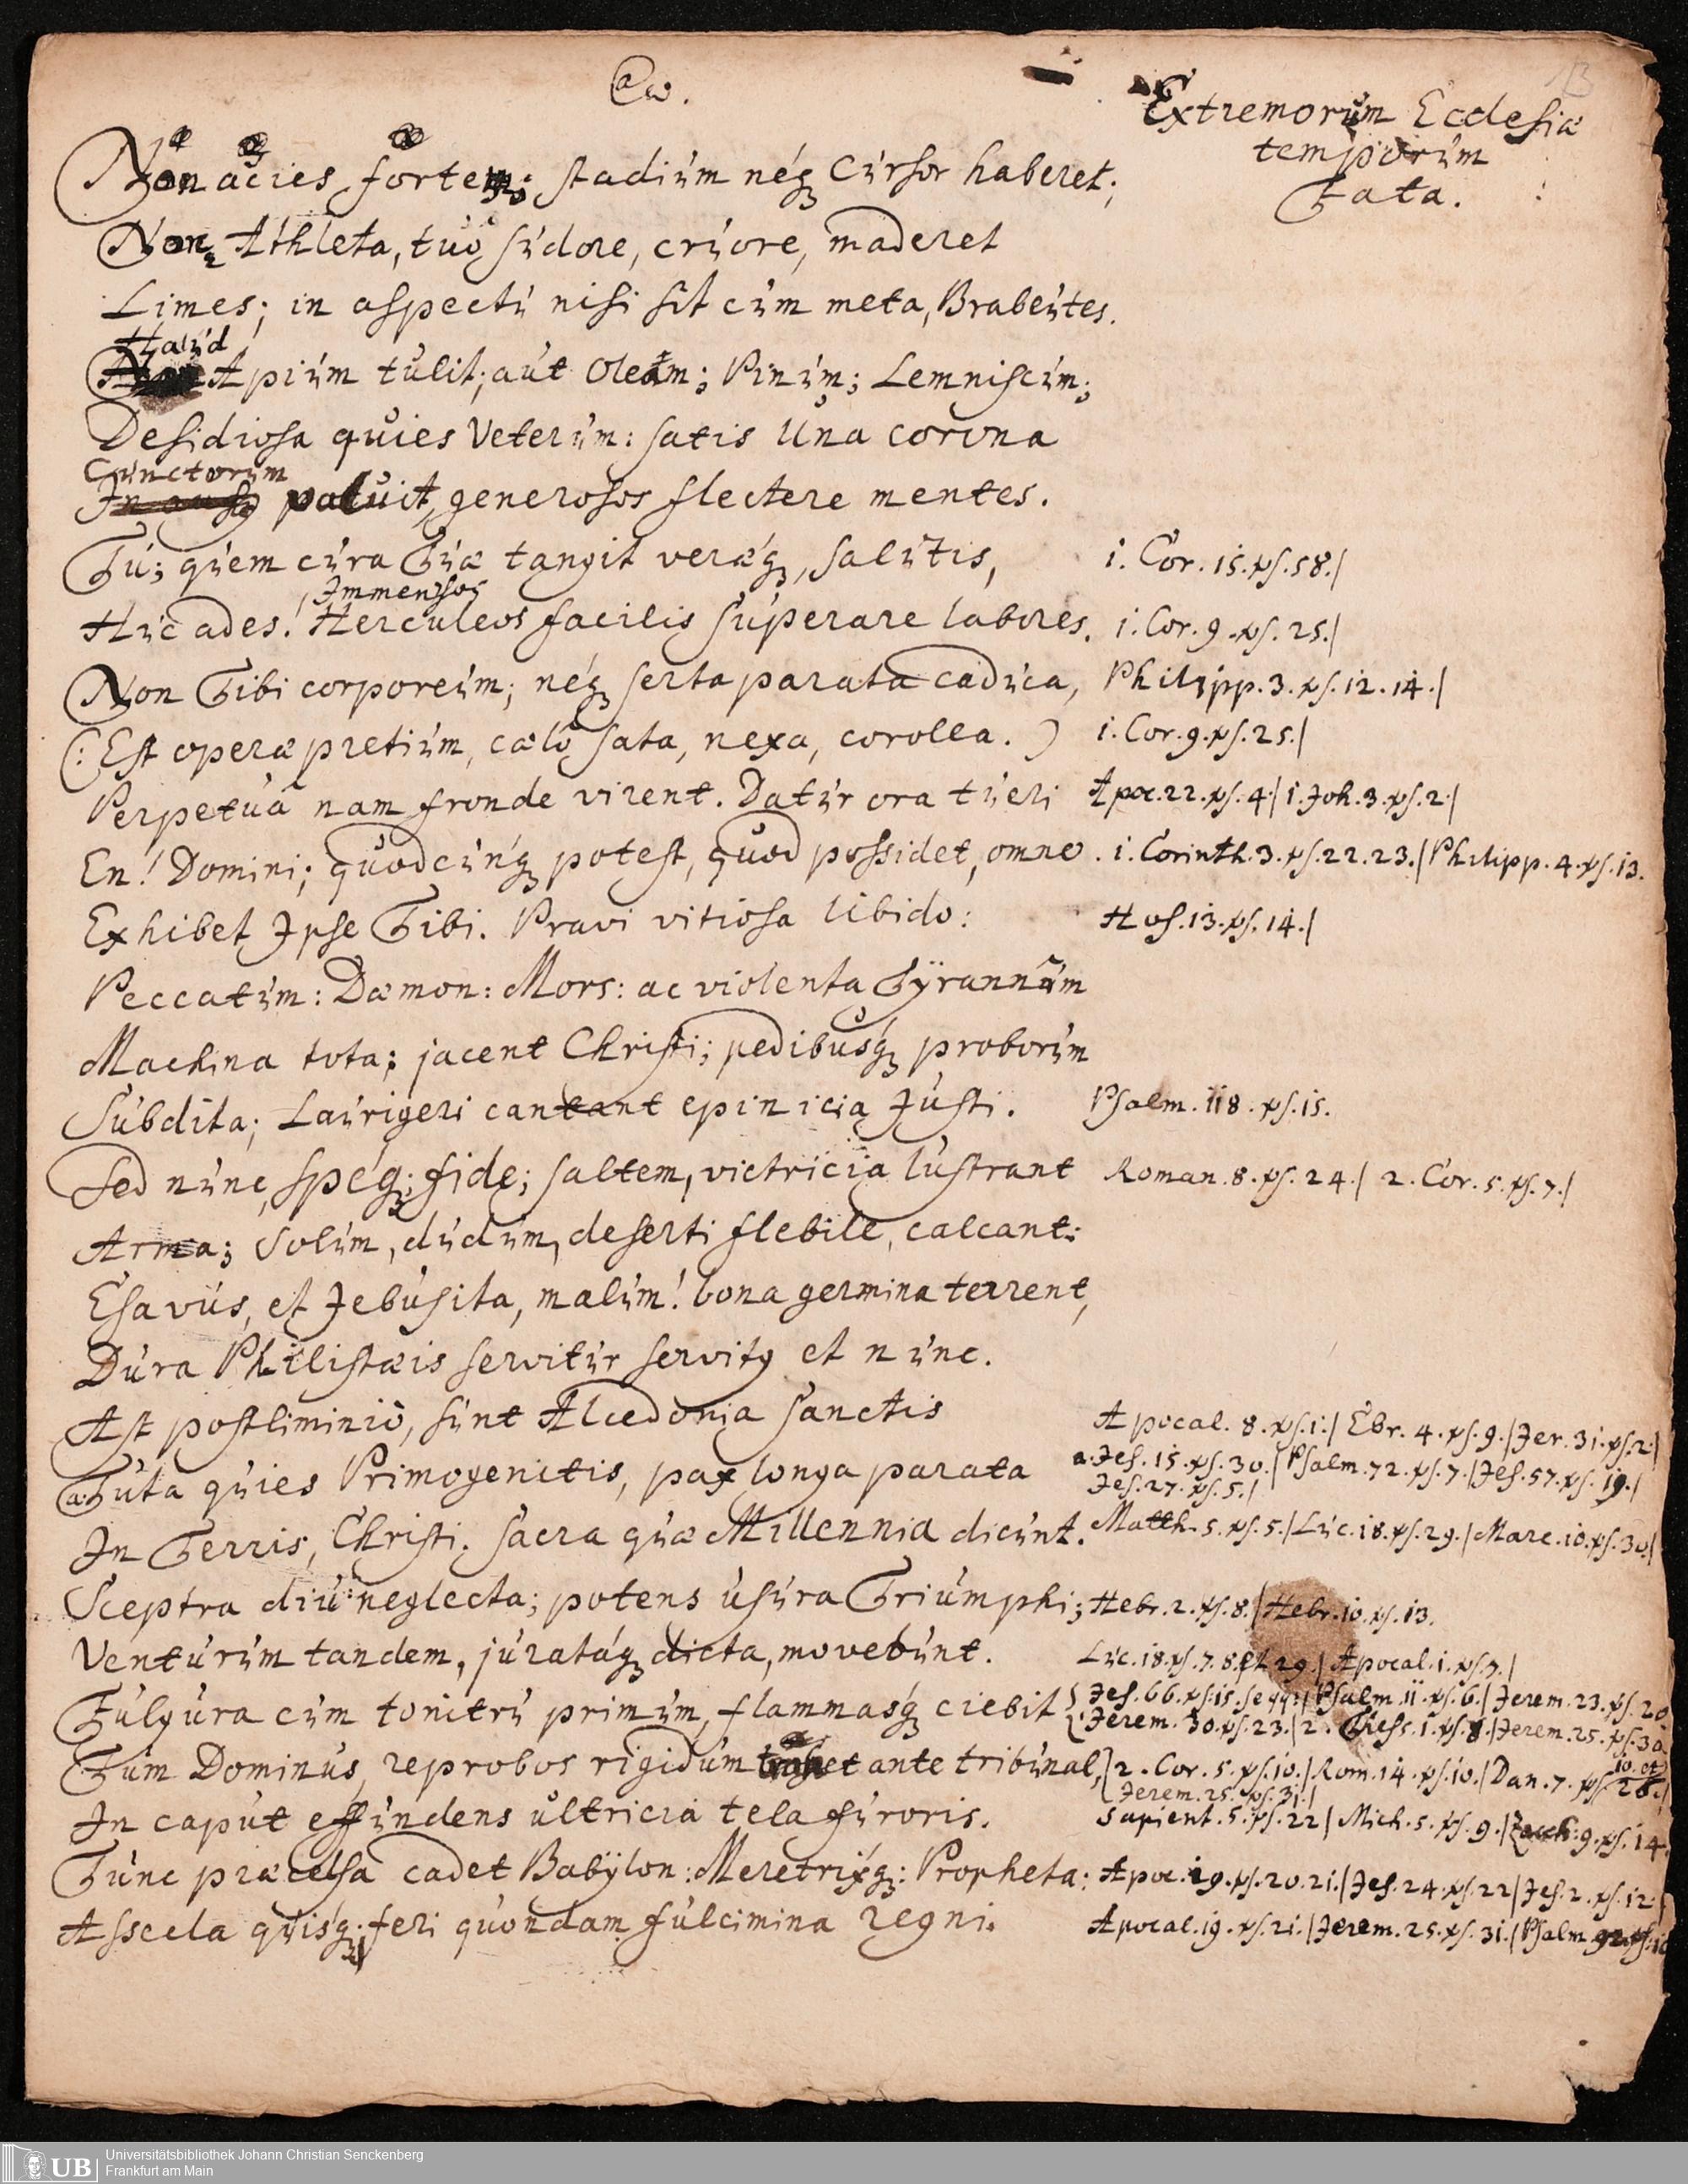 Extremorum Ecclesiæ
temporum
Fata.
Non acies forte; stadium neq́ꝫ Cursor haberet;
Athleta, tuô sudore, cruore, maderet
Limes; in aspectu nisi sit cum meta, Brabeutes.
Haud
Apium tulit; aut Oleam; Pinum; Lemniscum;
Desidiosa quies Veterum: satis Una corona
Cunctorum
potuit, generosos flectere mentes.
Tu; quem cura Tuæ tangit veræq́ꝫ, salutis,
Immensos
Huc ades! Herculeos facilis superare labores.
i. Cor. 15. vs. 58.|
i. Cor. 9. vs. 25.|
Non Tibi corporeum; neq́ꝫ serta parata caduca,
Philipp. 3. vs. 12. 14.|
(: Est operæ pretium, cælô sata, nexa, corolla. )
i. Cor. 9. vs. 25.|
Perpetuâ nam fronde virent. Datur ora tueri
Apoc. 22. vs. 4.| i. Joh. 3. vs. 2.|
En! Domini; quodcunq́ꝫ potest, quod possidet, omne.
i. Corinth. 3. vs. 22. 23.| Philipp. 4. vs. 13.
Exhibet Ipse Tibi. Pravi vitiosa libido:
Hos. 13. vs. 14.|
Peccatum: Dæmon: Mors: ac violenta Tÿrannûm
Machina tota; jacent Christi; pedibusq́ꝫ proborum
Subdita; Laurigeri cantant epinicia Justi.
Psalm. 118. vs. 15.
Sed nunc, speq́ꝫ; fide; saltem, victricia lustrant
Roman. 8. vs. 24.| 2. Cor. 5. vs. 7.|
Arma; Solum, dudum, deserti flebile, calcant:
Esavus, et Jebusita, malum! bona germina terrent,
Dura Philistæis servitur servitꝰ et nunc.
Ast postliminiô, sunt Alcedonia Sanctis
Apocal. 8. vs. 1.| Ebr. 4. vs. 9.| Jer. 31. vs. 2.|
Tuta quies Primogenitis, pax longa parata
a. Jes. 15. vs. 30.| Psalm. 72. vs. 7.| Jes. 57. vs. 19.|
Jes. 27. vs. 5.|
In Terris, Christi. Sacra quæ Millennia dicunt.
Matth. 5. vs. 5.| Luc. 18. vs. 29.| Marc. 10. vs. 30.|
Sceptra diu neglecta; potens usura Triumphi;
Hebr. 2. vs. 8.| Hebr. 10. vs. 13.
Venturum tandem, jurataq́ꝫ dicta, movebunt.
Luc. 18. vs. 7. 8. et 29.| Apocal. 1. vs. 7.|
Fulgura cum tonitru primum, flammasq́ꝫ ciebit
Jes. 66. vs. 15. seqq.| Psalm. 11. vs. 6.| Jerem. 23. vs. 20
Jerem. 30. vs. 23.| 2. Thess. 1. vs. 8.| Jerem. 25. vs. 30
Tum Dominus, reprobos rigidum trahet ante tribunal,
2. Cor. 5. vs. 10.| Rom. 14. vs. 10.| Dan. 7. vs. 10. et 26.|
Jerem. 25. vs. 31.|
In caput effundens ultricia tela furoris.
Sapient. 5. vs. 22| Mich. 5. vs. 9.| Zach. 9. vs. 14.
Tunc præcelsa cadet Babÿlon: Meretrixq́ꝫ: Propheta:
Apoc. 19. vs. 20. 21.| Jes. 24. vs. 22| Jes. 2. vs. 12.|
Asscela quisq́ꝫ; feri quondam fulcimina regni.
Apocal. 19. vs. 21.| Jerem. 25. vs. 31.| Psalm
UB
Universitätsbibliothek Johann Christian Senckenberg
Frankfurt am Main